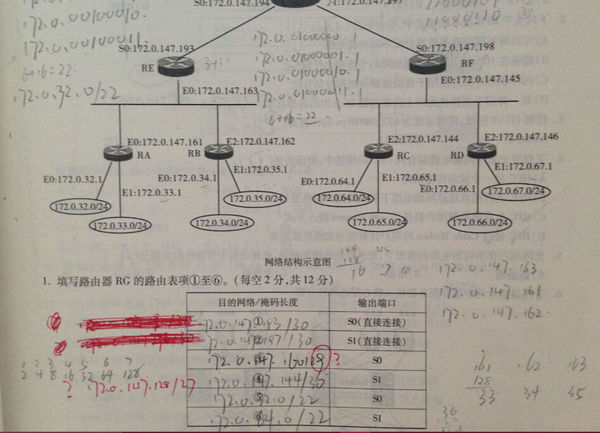 S0:172.0.147.194
S1:172.0.147.197
172.0.00100010.
172.0.00100011.
6+16=22
172.0.32.0/22
S0:172.0.147.193
RE
E0:172.0.147.163
172.0.01000000.1
172.0.01000001.1
172.0.01000010.1
172.0.01000011.1
6+16=22
S0:172.0.147.198
RF
E0:172.0.147.145
E0:172.0.147.161
RA
E2:172.0.147.162
RB
E2:172.0.147.144
RC
E2:172.0.147.146
RD
E0:172.0.32.1
E1:172.0.33.1
E0:172.0.34.1
E1:172.0.35.1
E0:172.0.64.1
E1:172.0.65.1
E0:172.0.66.1
E1:172.0.67.1
172.0.32.0/24
172.0.33.0/24
172.0.34.0/24
172.0.35.0/24
172.0.64.0/24
172.0.65.0/24
172.0.66.0/24
172.0.67.0/24
网络结构示意图
1. 填写路由器 RG 的路由表项①至⑥。(每空 2 分,共 12 分)
172.0.147.163
172.0.147.161
172.0.147.162
目的网络/掩码长度 输出端口
① S0(直接连接)
② S1(直接连接)
172.0.147.160/28 ? S0
④ S1
172.0.32.0/22 S0
172.0.64.0/22 S1
1 2 3 4 5 6 7
2 4 8 16 32 64 128
? 172.0.147.128/27
161 162 163
128
33 34 35